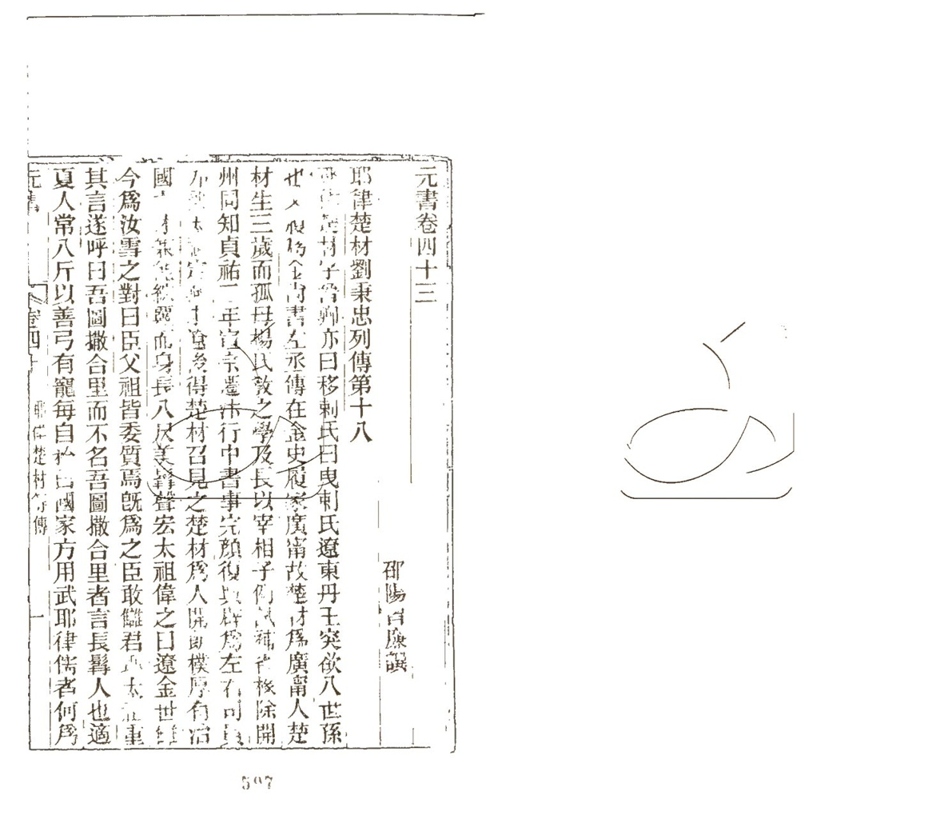 元書卷四十三
邵陽曾廉譔
耶律楚材劉秉忠列傳第十八
耶律楚材字晉卿亦曰移剌氏曰曳剌氏遼東丹王突欲八世孫
也父履爲金尚書左丞傳在金史履家廣甯故楚材爲廣甯人楚
材生三歲而孤母楊氏敎之學及長以宰相子例試補省掾除開
州同知貞祐二年宣宗遷汴行中書事完顏復興辟爲左右司員
後得楚材召見之楚材爲人開朗樸厚有治
國 身長八尺美髯聲宏太祖偉之曰遼金世讎
今爲汝雪之對曰臣父祖皆委質焉旣爲之臣敢讎君 太祖重
其言遂呼曰吾圖撒合里而不名吾圖撒合里者言長髯人也適
夏人常八斤以善弓有寵每自 國家方用武耶律儒者何爲
元書 卷四十 耶律楚材等傳 一
597